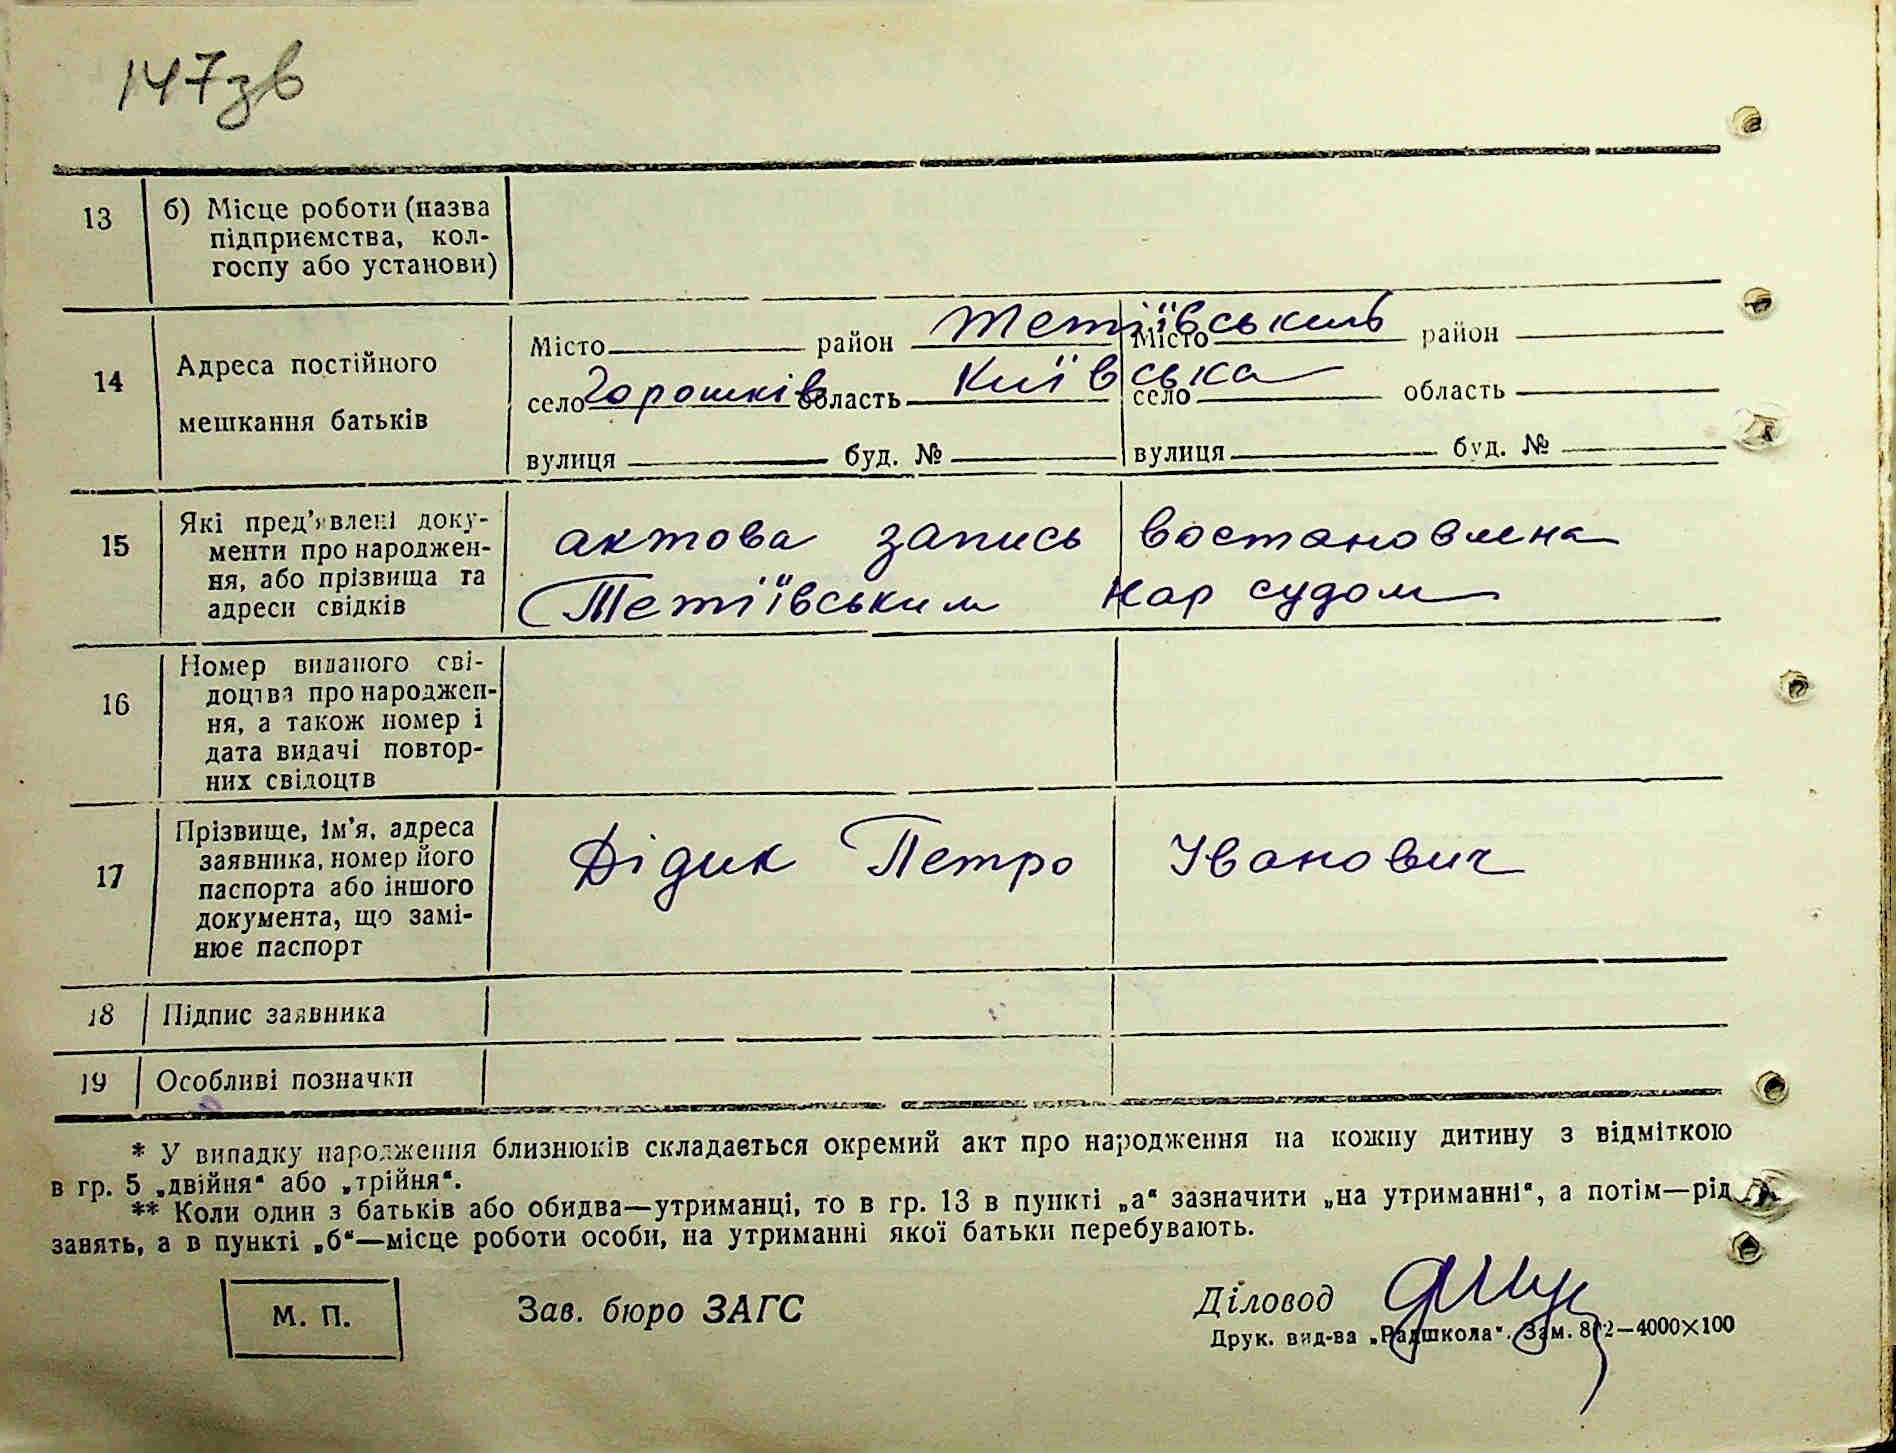 147зв
13 б) Місце роботи (назва
підприємства, кол-
госпу або установи)
14 Адреса постійного
мешкання батьків
Місто район Тетіївський Місто район
село Горошків область Київська село область
вулиця буд. № вулиця буд. №
15 Які пред'явлені доку-
менти про народжен-
ня, або прізвища та
адреси свідків
актова запись востановлена
Тетіївським Нар судом
16 Номер виданого сві-
доцтва про народжен-
ня, а також номер і
дата видачі повтор-
них свідоцтв
17 Прізвище, ім'я, адреса
заявника, номер його
паспорта або іншого
документа, що замі-
нює паспорт
Дідик Петро Іванович
18 Підпис заявника
19 Особливі позначки
* У випадку народження близнюків складається окремий акт про народження на кожну дитину з відміткою
в гр. 5 „двійня“ або „трійня“.
** Коли один з батьків або обидва—утриманці, то в гр. 13 в пункті „а“ зазначити „на утриманні“, а потім—рід
занять, а в пункті „б“—місце роботи особи, на утриманні якої батьки перебувають.
М. П. Зав. бюро ЗАГС Діловод
Друк. вид-ва „Радшкола“. Зам. 802—4000×100